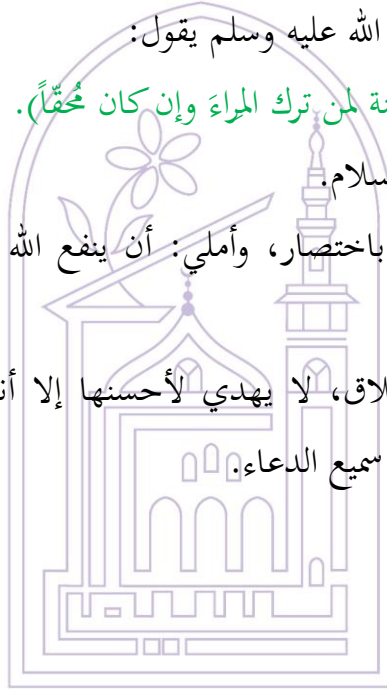 الله عليه وسلم يقول:
نة لمن ترك المِراءَ وإن كان مُحقّاً).
سلام.
باختصار، وأملي: أن ينفع الله
لاق، لا يهدي لأحسنها إلا أن
سميع الدعاء.